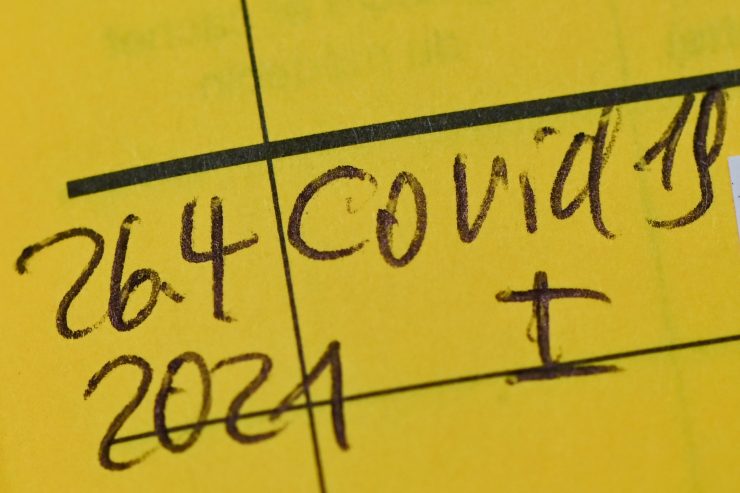 26.4 Covid 19
2021 I